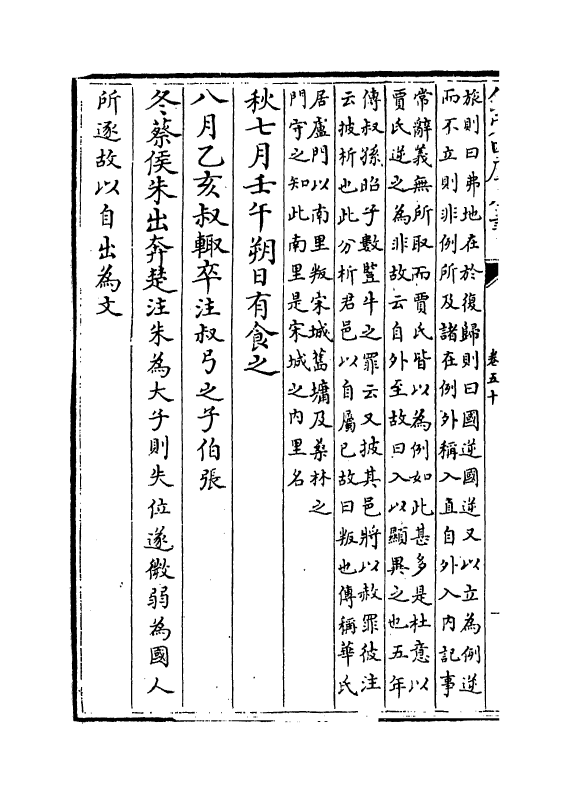 卷五十
旅則曰弗地在於復歸則曰國逆國逆又以立為例逆
而不立則非例所及諸在例外稱入直自外入内記事
常辭義無所取而賈氏皆以為例如此甚多是杜意以
賈氏逆之為非故云自外至故曰入以顯異之也五年
傳叔孫昭子數豎牛之罪云又披其邑將以赦罪彼注
云披析也此分析君邑以自屬已故曰叛也傳稱華氏
居盧門以南里叛宋城舊墉及桑林之
門守之知此南里是宋城之内里名
秋七月壬午朔日有食之
八月乙亥叔輙卒注叔弓之子伯張
冬蔡侯朱出奔楚注朱為大子則失位遂微弱為國人
所逐故以自出為文